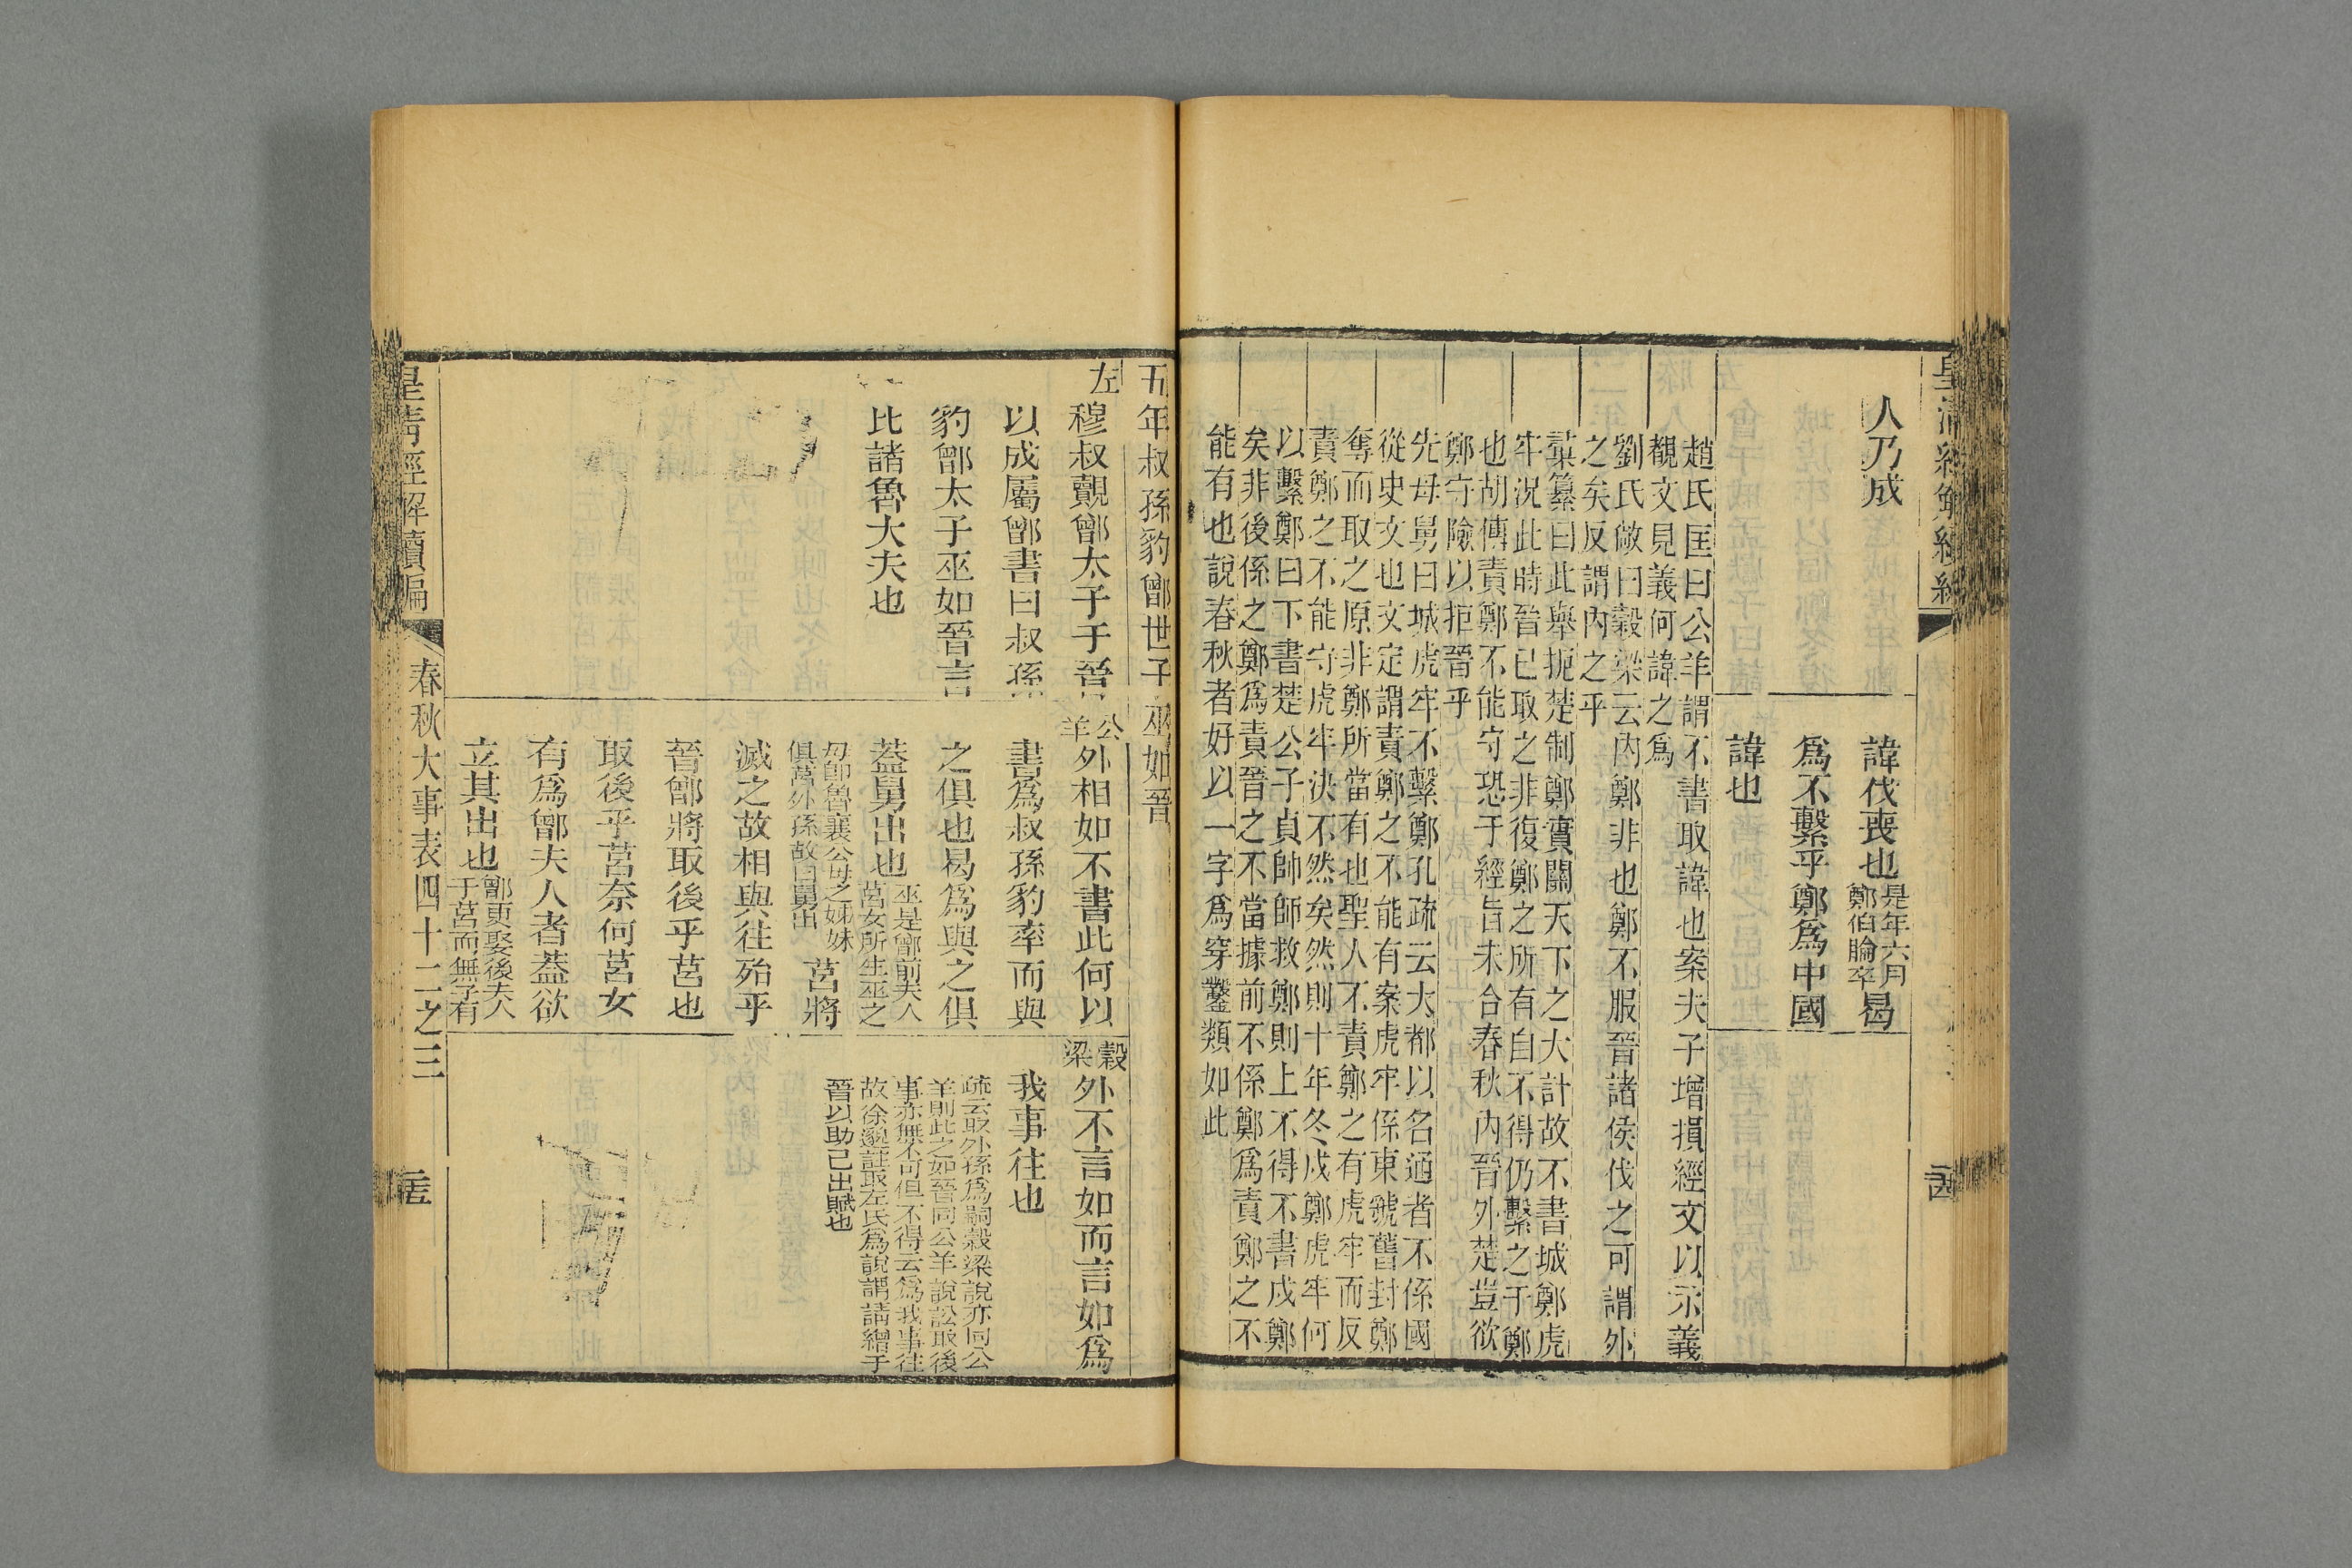 人乃成
諱伐喪也是年六月鄭伯睔卒曷
爲不繫乎鄭爲中國
諱也
趙氏匡曰公羊謂不書取諱也案夫子增損經文以示義
觀文見義何諱之爲
劉氏敞曰穀梁云內鄭非也鄭不服晉諸侯伐之可謂外
之矣反謂內之乎
彙纂曰此舉扼楚制鄭實關天下之大計故不書城鄭虎
牢況此時晉已取之非復鄭之所有自不得仍繫之于鄭
也胡傳責鄭不能守恐于經旨未合春秋內晉外楚豈欲
鄭守險以拒晉乎
先母舅曰城虎牢不繫鄭孔疏云大都以名通者不係國
從史文也文定謂責鄭之不能有案虎牢係東虢舊封鄭
奪而取之原非鄭所當有也聖人不責鄭之有虎牢而反
責鄭之不能守虎牢決不然矣然則十年冬戍鄭虎牢何
以繫鄭曰下書楚公子貞帥師救鄭則上不得不書戍鄭
矣非後係之鄭爲責晉之不當據前不係鄭爲責鄭之不
能有也說春秋者好以一字爲穿鑿類如此
五年叔孫豹鄫世子巫如晉
左
穆叔覿鄫太子于晉
以成屬鄫書曰叔孫
豹鄫太子巫如晉言
比諸魯大夫也
公羊
外相如不書此何以
書爲叔孫豹率而與
之俱也曷爲與之俱
蓋舅出也巫是鄫前夫人莒女所生巫之
母卽魯襄公母之姊妹俱莒外孫故曰舅出莒將
滅之故相與往殆乎
晉鄫將取後乎莒也
取後乎莒奈何莒女
有爲鄫夫人者蓋欲
立其出也鄫更娶後夫人于莒而無子有
穀梁
外不言如而言如爲
我事往也
疏云取外孫爲嗣穀梁說亦同公
羊則此之如晉同公羊說訟取後
事亦無不可但不得云爲我事往
故徐邈註取左氏爲說謂請繒于
晉以助己出賦也
皇清經解續編
春秋大事表四十二之三